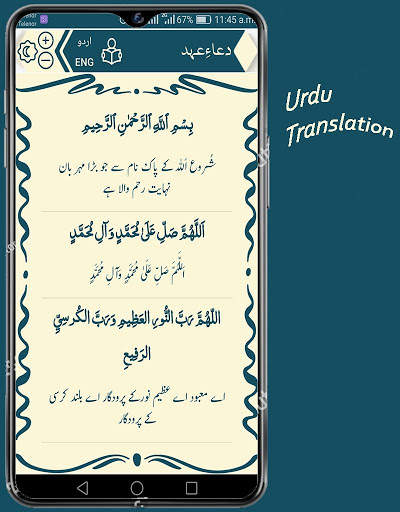 Telenor
Telenor
67% 11:45 a.m.
اردو
ENG
دعاءِعہد
بِسْمِ اللّٰهِ الرَّحْمٰنِ الرَّحِيمِ
شُروع اَللہ کے پاک نام سے جو بڑا مہر بان
نہایت رحم والا ہے
اَللّٰهُمَّ صَلِّ عَلىٰ مُحَمَّدٍ وَآلِ مُحَمَّدٍ
اَللّٰھُمَّ صَلِّ عَلٰی مُحَمَّدٍ وَآلِ مُحَمَّدٍ
اللّهُمَّ رَبَّ النُّورِ العَظِيمِ وَرَبَّ الكُرسِيِّ
الرَفِيعِ
اے معبود اے عظیم نورکے پرودگار اے بلند کرسی
کے پرودگار
Urdu
Translation